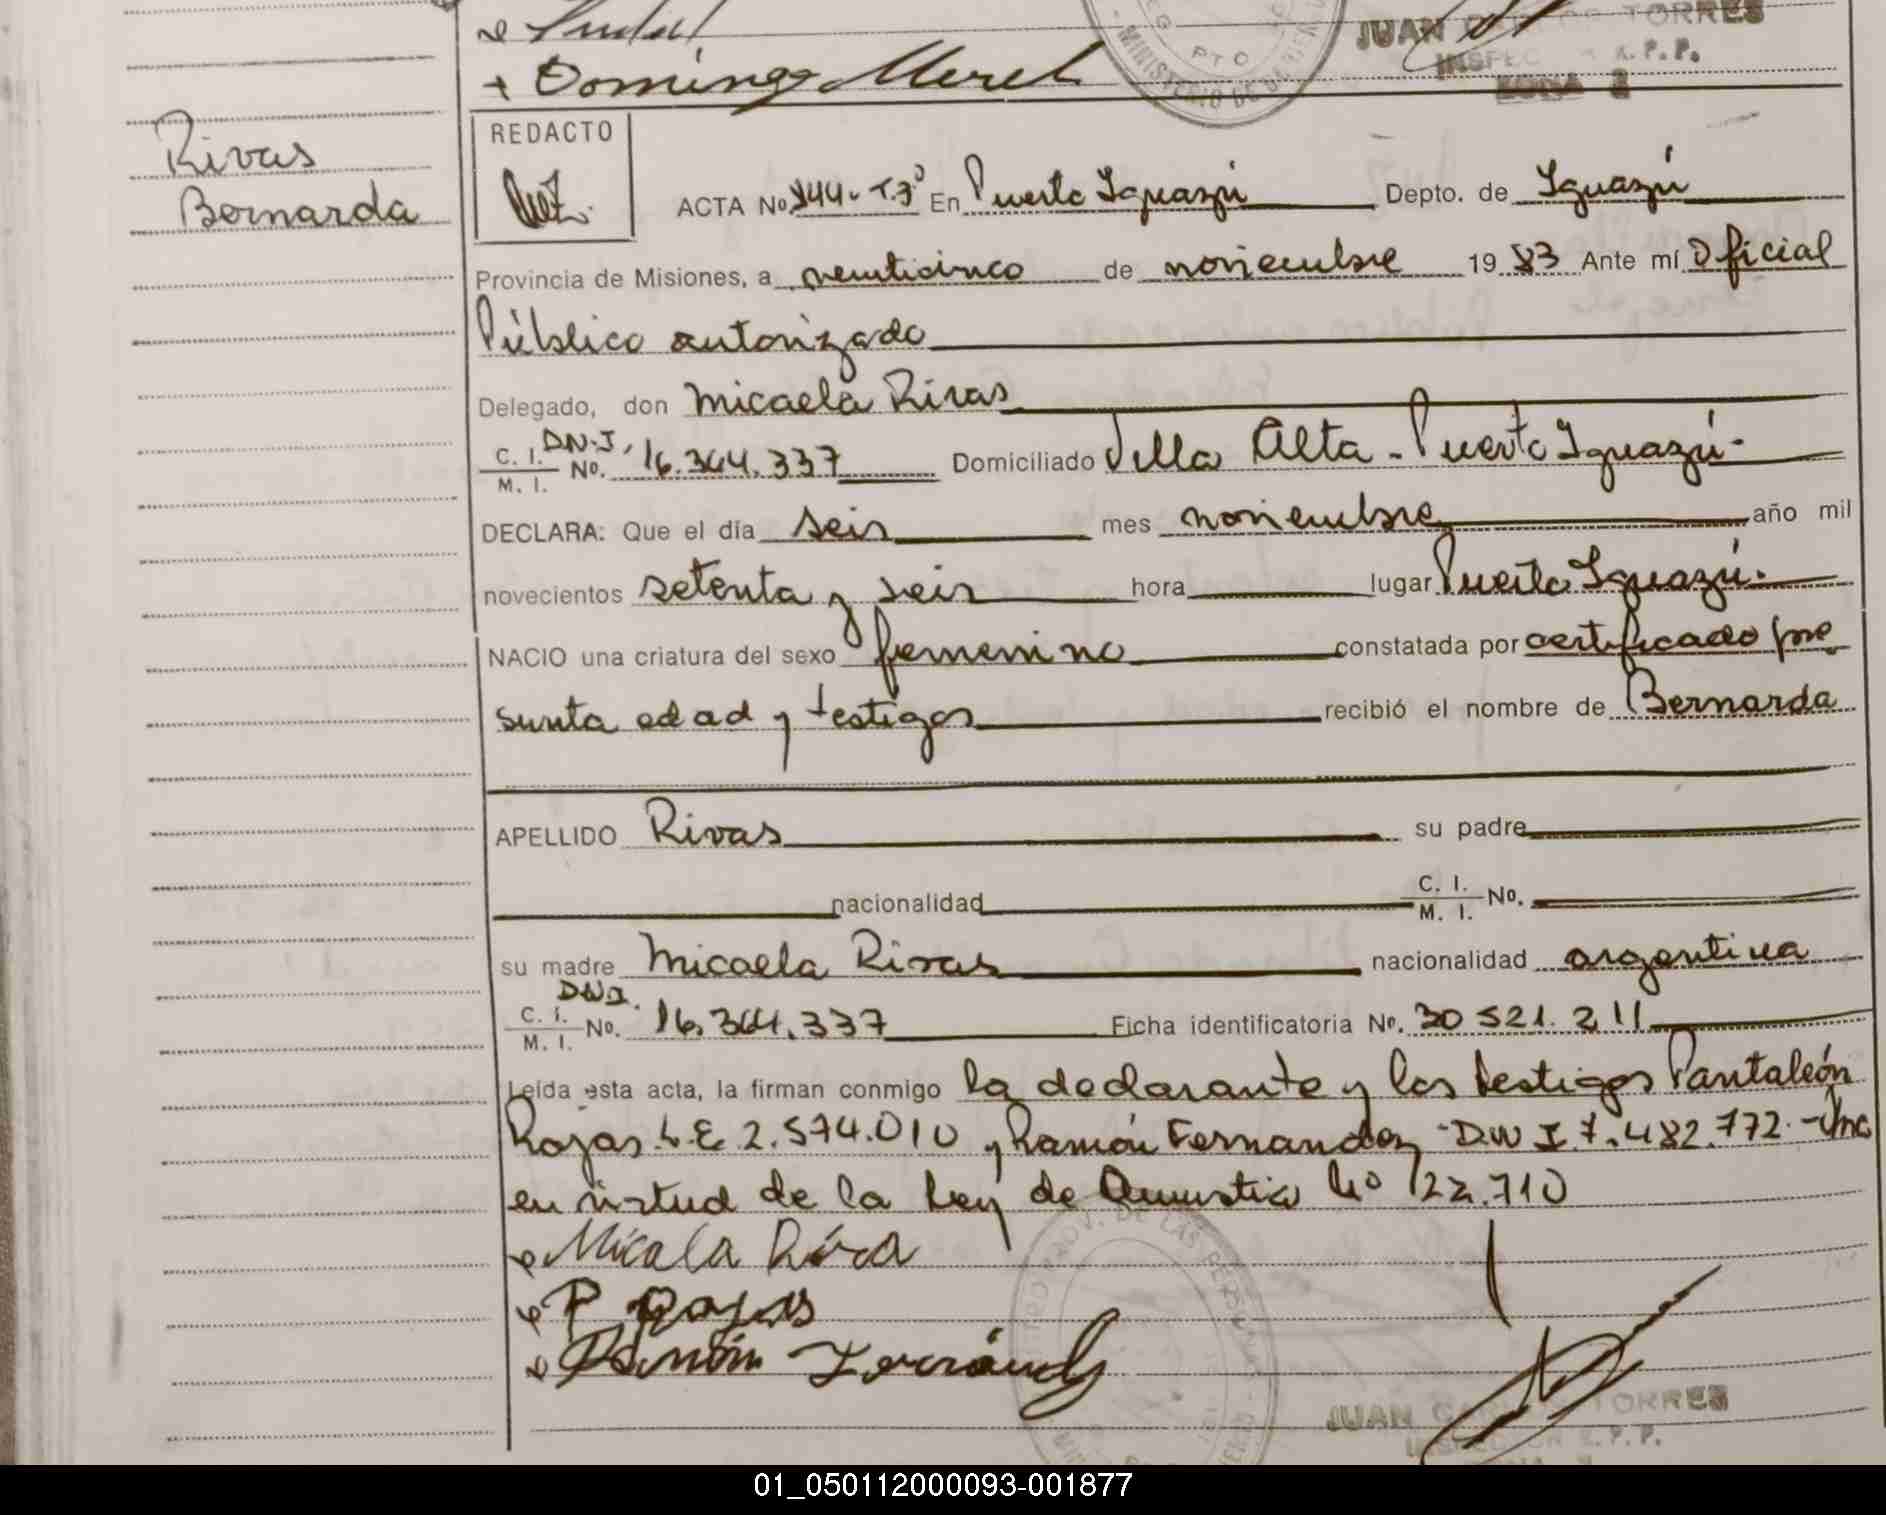 Domingo Merel
MINISTERIO DE
JUAN CARLOS TORRES
INSPECTOR R.P.P.
ZONA 2
Rivas
Bernarda
REDACTO
ACTA No. 344- T.3º En Puerto Iguazú Depto. de Iguazú
Provincia de Misiones, a veinticinco de noviembre 1983 Ante mí Oficial
Público autorizado
Delegado, don Micaela Rivas
C. I. M. I. No. D.N.I, 16.364.337 Domiciliado Villa Alta - Puerto Iguazú-
DECLARA: Que el día seis mes noviembre año mil
novecientos setenta y seis hora lugar Puerto Iguazú.
NACIO una criatura del sexo femenino constatada por certificado pre
sunta edad y testigos recibió el nombre de Bernarda
APELLIDO Rivas su padre
nacionalidad C. I. M. I. No.
su madre Micaela Rivas nacionalidad argentina
C. I. M. I. No. DNI. 16.364.337 Ficha identificatoria No. 30 521. 211
Leída esta acta, la firman conmigo la declarante y los testigos Pantaleón
Rojas L.E 2.574.010 y Ramón Fernandez DNI 7.482.772.- Ins
en virtud de la Ley de Amnistia Nº 22.710
Micala Riva
P Rojas
Ramón Fernández
JUAN CARLOS TORRES
INSPECTOR R.P.P.
01_050112000093-001877